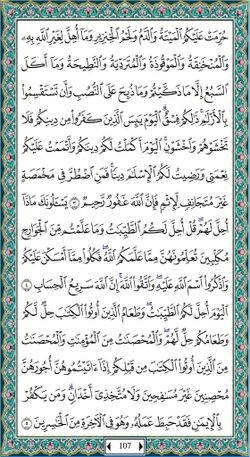 حُرِّمَتْ عَلَيْكُمُ الْمَيْتَةُ وَالدَّمُ وَلَحْمُ الْخِنزِيرِ وَمَا أُهِلَّ لِغَيْرِ اللَّهِ بِهِ
وَالْمُنْخَنِقَةُ وَالْمَوْقُوذَةُ وَالْمُتَرَدِّيَةُ وَالنَّطِيحَةُ وَمَا أَكَلَ
السَّبُعُ إِلَّا مَا ذَكَّيْتُمْ وَمَا ذُبِحَ عَلَى النُّصُبِ وَأَن تَسْتَقْسِمُوا
بِالْأَزْلَامِ ذَٰلِكُمْ فِسْقٌ الْيَوْمَ يَئِسَ الَّذِينَ كَفَرُوا مِن دِينِكُمْ فَلَا
تَخْشَوْهُمْ وَاخْشَوْنِ الْيَوْمَ أَكْمَلْتُ لَكُمْ دِينَكُمْ وَأَتْمَمْتُ عَلَيْكُمْ
نِعْمَتِي وَرَضِيتُ لَكُمُ الْإِسْلَامَ دِينًا فَمَنِ اضْطُرَّ فِي مَخْمَصَةٍ
غَيْرَ مُتَجَانِفٍ لِّإِثْمٍ فَإِنَّ اللَّهَ غَفُورٌ رَّحِيمٌ ٣ يَسْأَلُونَكَ مَاذَا
أُحِلَّ لَهُمْ قُلْ أُحِلَّ لَكُمُ الطَّيِّبَاتُ وَمَا عَلَّمْتُم مِّنَ الْجَوَارِحِ
مُكَلِّبِينَ تُعَلِّمُونَهُنَّ مِمَّا عَلَّمَكُمُ اللَّهُ فَكُلُوا مِمَّا أَمْسَكْنَ عَلَيْكُمْ
وَاذْكُرُوا اسْمَ اللَّهِ عَلَيْهِ وَاتَّقُوا اللَّهَ إِنَّ اللَّهَ سَرِيعُ الْحِسَابِ ٤
الْيَوْمَ أُحِلَّ لَكُمُ الطَّيِّبَاتُ وَطَعَامُ الَّذِينَ أُوتُوا الْكِتَابَ حِلٌّ لَّكُمْ
وَطَعَامُكُمْ حِلٌّ لَّهُمْ وَالْمُحْصَنَاتُ مِنَ الْمُؤْمِنَاتِ وَالْمُحْصَنَاتُ
مِنَ الَّذِينَ أُوتُوا الْكِتَابَ مِن قَبْلِكُمْ إِذَا آتَيْتُمُوهُنَّ أُجُورَهُنَّ
مُحْصِنِينَ غَيْرَ مُسَافِحِينَ وَلَا مُتَّخِذِي أَخْدَانٍ وَمَن يَكْفُرْ
بِالْإِيمَانِ فَقَدْ حَبِطَ عَمَلُهُ وَهُوَ فِي الْآخِرَةِ مِنَ الْخَاسِرِينَ ٥
107